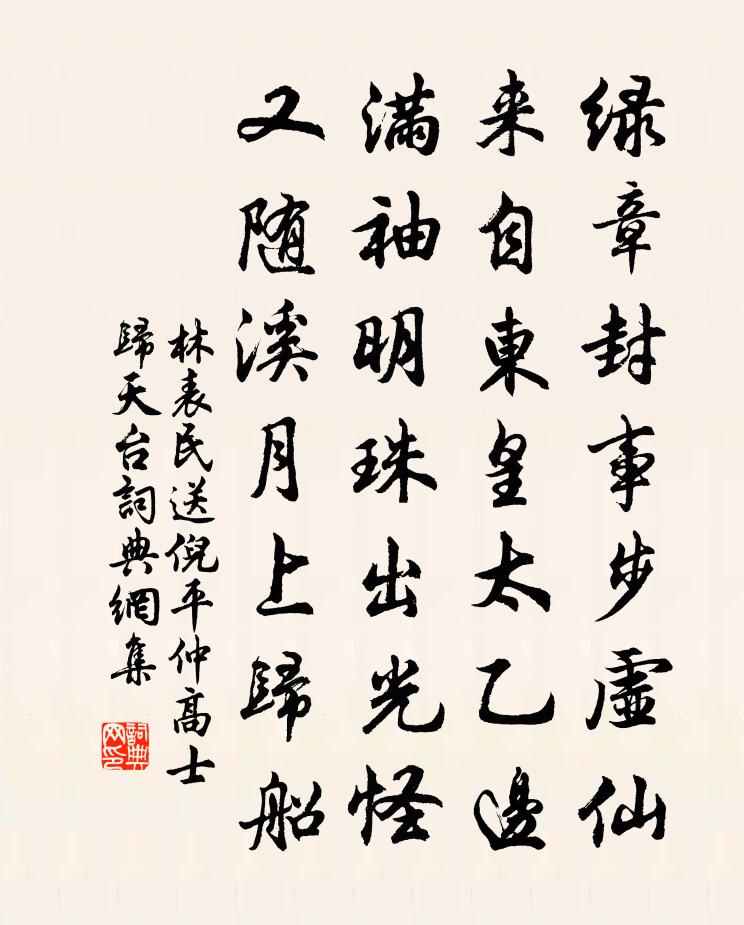 绿章封事步虚仙
来自東皇太乙邊
满袖明珠出光怪
又随溪月上歸船
林表民送倪平仲高士
歸天台詞典網集
詞典网印